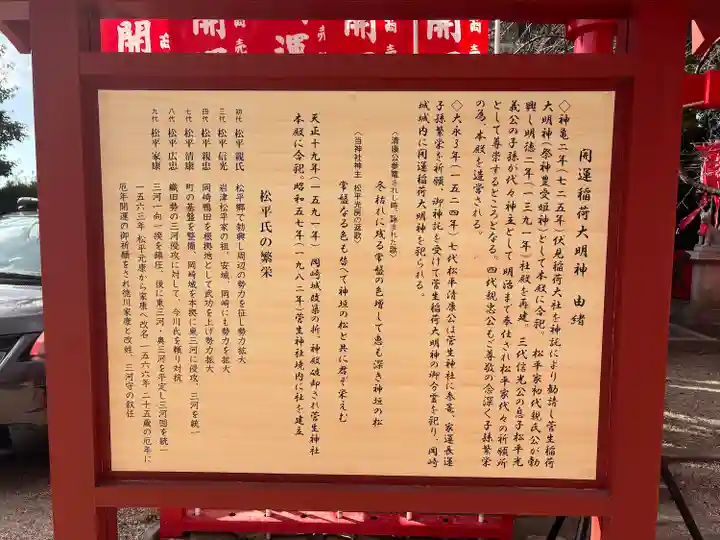 開運稲荷大明神 由緒
◇神亀二年(七二五年)伏見稲荷大社を神託により勧請し菅生稲荷
大明神(祭神豊受姫神)として本殿に合祀。 松平家初代親氏公が勃
興し明徳二年(一三九一年)社殿を再建。三代信光公の息子松平光
義公の子孫が代々神主として 明治まで奉仕され松平家代々の祈願所
として尊崇するところとなる。 四代親忠公もご尊敬の念深く子孫繁栄
の為、本殿を造営される。
◇大永3年(一五二四年)七代松平清康公は菅生神社に参篭、家運長運
子孫繁栄を祈願、御神託を受けて菅生稲荷大明神の御分霊を祀り、岡崎
城城内に開運稲荷大明神を祀られる。
〈清康公参篭されし時、詠まれた歌〉
冬枯れに残る常盤の色増して恵も深き神垣の松
〈当神社神主 松平光房の返歌〉
常盤なる色も替へで神垣の松と共に君ぞ栄えむ
天正十九年(一五九一年) 岡崎城改築の折、神殿破却され菅生神社
本殿に合祀。昭和五七年(一九八二年)菅生神社境内に社を建立
松平氏の繁栄
初代 松平親氏 松平郷で勃興し周辺の勢力を征し勢力拡大
三代 松平信光 岩津松平家の祖、安城、岡崎にも勢力を拡大
四代 松平親忠 岡崎鴨田を根拠地として武功を上げ勢力拡大
七代 松平清康 町の基盤を整備、岡崎城を本拠に東三河に侵攻、三河を統一
八代 松平広忠 織田勢の三河侵攻に対して、今川氏を頼り対抗
九代 松平家康 三河一向一揆を鎮圧、後に東三河・奥三河を平定し三河国を統一
一五六三年 松平元康から家康へ改名 一五六六年 二十五歳の厄年に
厄年開運の御祈願をされ徳川家康と改姓、三河守の叙任
開
開運
運
開
開